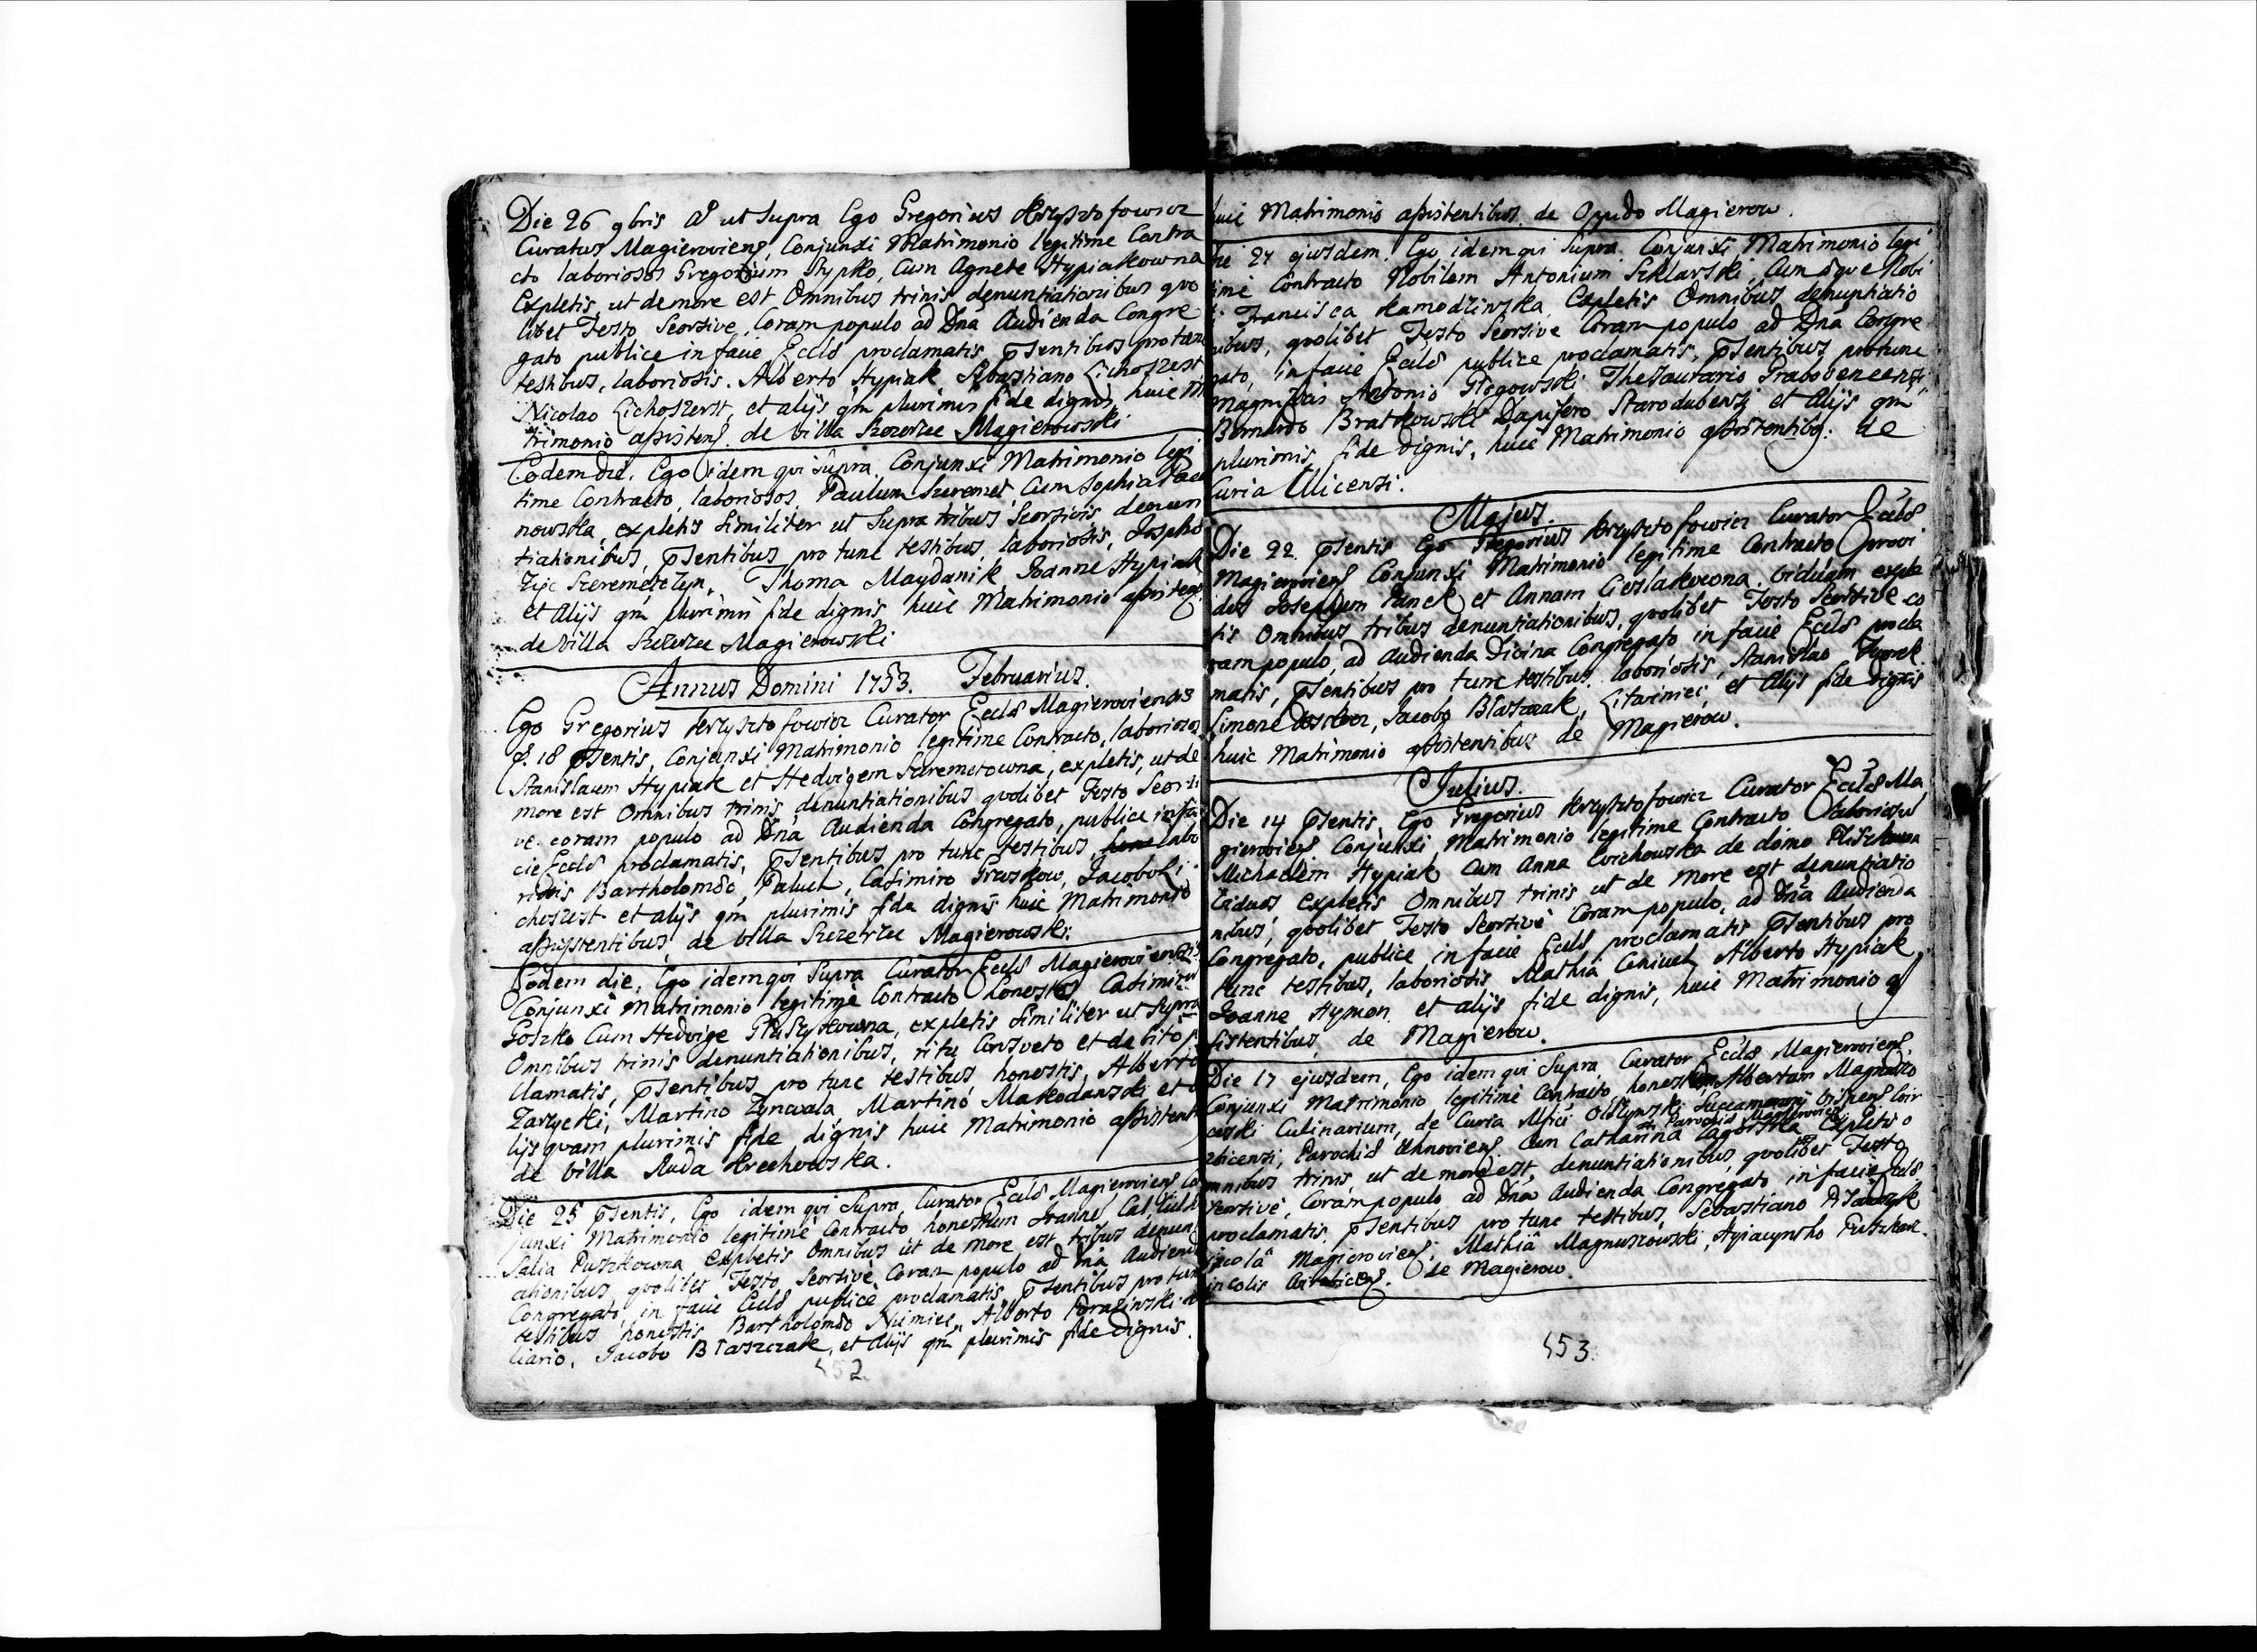 Die 26 9bris Aº ut Supra Ego Gregorius Krzysztofowicz
Curatus Magieroviens, Conjunxi Matrimonio legitime Contra
cto laboriosos Gregorium Stypko, Cum Agnete Hypiakowna
Expletis, ut de more est Omnibus trinis denuntiationibus quo
libet Festo Seorsive, Coram populo ad Dna Audienda Congre
gato publice in facie Eccls proclamatis, pSentibus pro tunc
testibus, laboriosis. Alberto Hypiak, Sbastiano Lichoszerst
Nicolao Lichoszerst, et alijs qm plurimis fide dignis, huic M
trimonio assistens. de villa Szczerzec Magierowski
Eodem die. Ego idem qui Supra, Conjunxi Matrimonio legi
time Contracto, laboriosos. Paulum Szeremet, Cum Sophia
nowska, expletis Similiter ut Supra tribus Seorsivis denun
tiationibus, pSentibus pro tunc testibus laboriosis, Josepho
Szeremetelyn, Thoma Maydanik Joanne Hypiak
et Alijs qm plurimis fide dignis huic Matrimonio assistens.
de villa Szczerzec Magierowski
Annus Domini 1753. Februarius.
Ego Gregorius Krzysztofowicz Curator Eccls Magierovienss
d. 18 pSentis, Conjunxi Matrimonio legitime Contracto, laboriosos
Stanislaum Hypiak et Hedvigem Szeremetowna, expletis, ut de
more est Omnibus trinis, denuntiationibus quolibet Festo Seorsi
ve coram populo ad Dna Audienda Congregato, publice in fa
cie Eccls proclamatis, pSentibus pro tunc testibus, labo
riosis Bartholomeo, Paluch, Casimiro Gruszkow, Jacobo Li
choszest et alijs qm plurimis fide dignis huic Matrimonio
assistentibus, de villa Szczerzec Magierowski.
Eodem die, Ego idem qui Supra Curator Eccls Magierovienss
Conjunxi Matrimonio legitime Contracto honestos Casimiru
Goszko Cum Hedvige Gluszykowna, expletis Similiter ut Supra
Omnibus trinis denuntiationibus, ritu Consveto et debito p
clamatis, pSentibus pro tunc testibus honestis, Alberto
Zarzycki, Martino Zyncvala, Martino Makodanski et a
lijs quam plurimis fide dignis huic Matrimonio assistent
de villa Ruda Krechowska.
Die 25 pSentis, Ego idem qui Supra, Curator Eccls Magieroviens Co
junxi Matrimonio legitime Contracto honestum Joannem
Salia Puszkowna expletis Omnibus ut de more est tribus denun
ationibus quolibet Festo Seorsive Coram populo ad Dna Audiend
Congregato, in facie Eccls publice proclamatis pSentibus pro tun
testibus honestis Bartholomeo Niemiec, Alberto
liario, Jacobo Blaszczak, et Alijs qm plurimis fide dignis.
452
huic Matrimonio assistentibus. de Opido Magierow.
Die 27 ejusdem. Ego idem qui Supra. Conjunxi Matrimonio legi
time Contracto Nobilem Antonium Szklarski, Cum aque Nobi
li Francisca Kamodzinska, Expletis Omnibus denuntiatio
nibus, quolibet Festo Seorsive Coram populo ad Dna Congre
gato, in facie Eccls publice proclamatis, pSentibus protunc
Antonio Glogowski Thesaurario Grabovencensi,
Bernardo Bratkowski Dapifero Starodubensi et Alijs qm
plurimis fide dignis, huic Matrimonio assistentibq: de
Curia Ulicensi.
Majus.
Die 22 pSentis Ego Gregorius Krzysztofowicz Curator Eccls
Magieroviens Conjunxi Matrimonio legitime Contracto provi
dos Josephum Panek et Annam Cieslakowna. viduam, exple
tis Omnibus tribus denuntiationibus, quolibet Festo Seorsive co
ram populo, ad Audienda Divina Congregato in facie Eccls procla
matis, pSentibus pro tunc testibus. laboriosis, Stanislao
Simone Jacobo Blaszczak, Litwiniec, et Alijs fide dignis
huic Matrimonio assistentibus de Magierow.
Julius.
Die 14 pSentis Ego Gregorius Krzysztofowicz Curator Eccls Ma
gieroviens Conjunxi Matrimonio legitime Contracto laboriosu
Michaelem Hypiak Cum Anna Cvichowska de domo
viduos expletis Omnibus trinis ut de more est denuntiatio
nibus, quolibet Festo Seorsive Coram populo, ad Dna Audienda
Congregato, publice in facie Eccls proclamatis pSentibus pro
tunc testibus, laboriosis, Mathia Alberto Hypiak,
Joanne Hymon, et alijs fide dignis, huic Matrimonio as
sistentibus, de Magierow.
Die 17 ejusdem, Ego idem qui Supra, Curator Eccls Magieroviens,
Conjunxi Matrimonio legitime Contracto honestum Albertum
Culinarium, de Curia
de Parochia Magieroviens
Parochia Cum Catharina Expletis o
mnibus trinis, ut de more est, denuntiationibus quolibet Festo
Seorsive, Coram populo ad Dna Audienda Congregato in facie Eccls
proclamatis, pSentibus pro tunc testibus, Sebastiano
incola Magieroviens, Mathia Magnuszowski, Hyiacyntho
incolis de Magierow.
453.